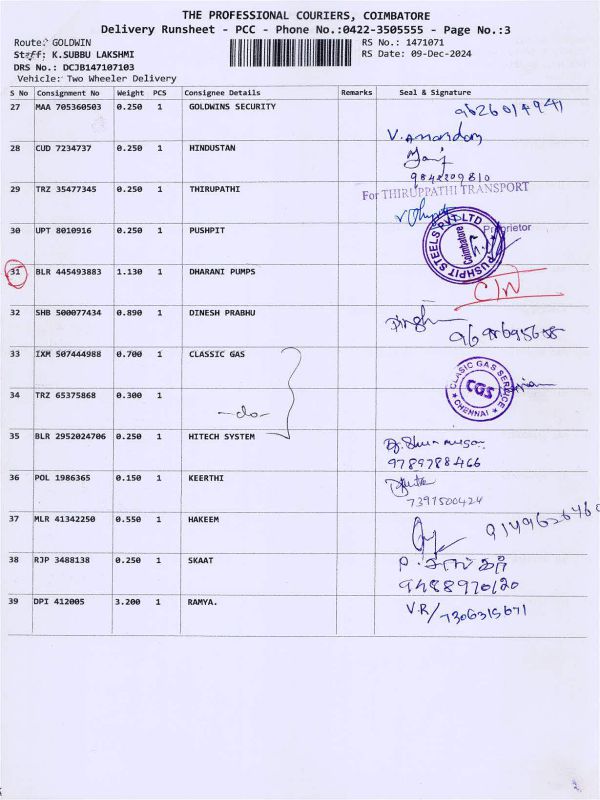 THE PROFESSIONAL COURIERS, COIMBATORE
Delivery Runsheet - PCC - Phone No.:0422-3505555 - Page No.:3
Route: GOLDWIN
RS No.: 1471071
Staff: K.SUBBU LAKSHMI
RS Date: 09-Dec-2024
DRS No.: DCJB147107103
Vehicle: Two Wheeler Delivery
S No Consignment No Weight PCS Consignee Details Remarks Seal & Signature
27 MAA 705360503 0.250 1 GOLDWINS SECURITY 9626014941
V.Anandan
28 CUD 7234737 0.250 1 HINDUSTAN
9842209810
29 TRZ 35477345 0.250 1 THIRUPATHI
For THIRUPPATHI TRANSPORT
Proprietor
30 UPT 8010916 0.250 1 PUSHPIT
PUSHPIT STEELS PVT LTD
Coimbatore
31 BLR 445493883 1.130 1 DHARANI PUMPS
32 SHB 500077434 0.890 1 DINESH PRABHU
9698695658
33 IXM 507444988 0.700 1 CLASSIC GAS
CLASIC GAS SERVICE
CGS
CHENNAI
34 TRZ 65375868 0.300 1
-do-
35 BLR 2952024706 0.250 1 HITECH SYSTEM
9789788466
36 POL 1986365 0.150 1 KEERTHI
7397500424
37 MLR 41342250 0.550 1 HAKEEM
38 RJP 3488138 0.250 1 SKAAT
9488970120
39 DPI 412005 3.200 1 RAMYA.
V.R/7306315671